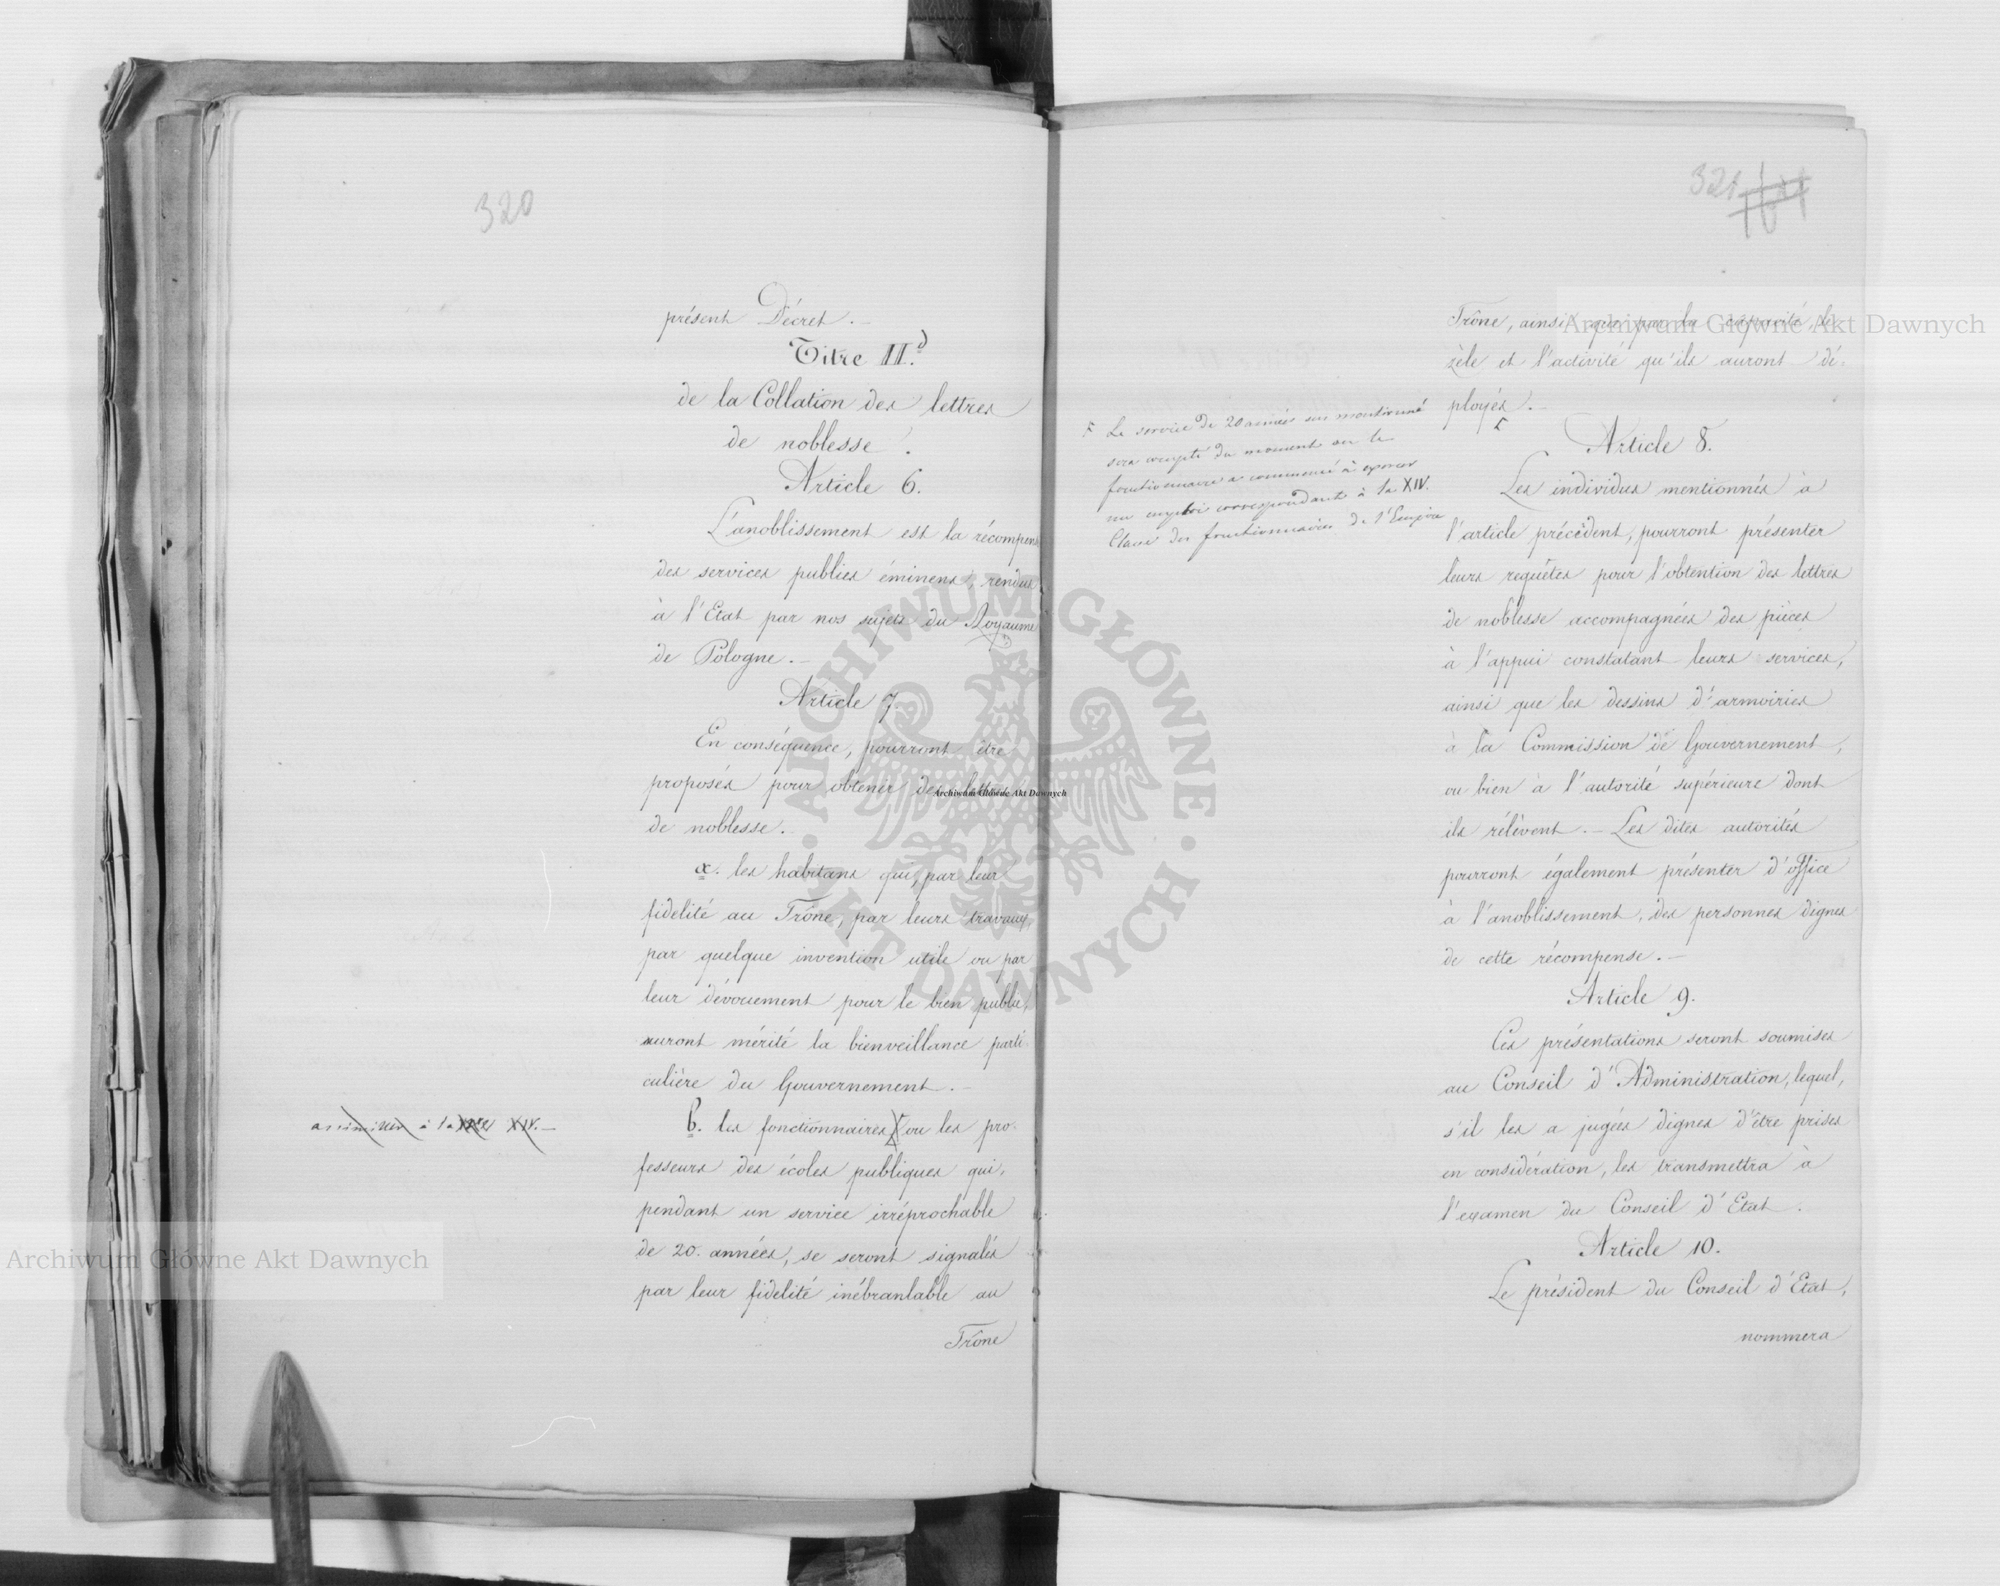 320
présent Décret. —
Titre II.d
de la Collation des lettres
de noblesse.
Article 6.
L'anoblissement est la récompense
des services publics éminens, rendus
à l'Etat par nos sujets du Royaume
de Pologne. —
Article 7.
En conséquence, pourront être
proposés pour obtenir des lettres
de noblesse.
a. les habitans qui, par leur
fidélité au Trône, par leurs travaux,
par quelque invention utile ou par
leur dévouement pour le bien public,
auront mérité la bienveillance parti
culière du Gouvernement. —
assimilés à la XIV. —
b. les fonctionnaires ou les pro-
fesseurs des écoles publiques qui,
pendant un service irréprochable
de 20. années, se seront signalés
par leur fidélité inébranlable au
Trône
321
Trône, ainsi que par la capacité, le
zèle et l'activité qu'ils auront dé-
ployés. —
Le service de 20 années sus mentionné
sera compté du moment ou le
fonctionnaire a commencé à exercer
un emploi correspondant à la XIV.
Classe des fonctionnaires de l'Empire
Article 8.
Les individus mentionnés à
l'article précédent, pourront présenter
leurs requêtes pour l'obtention des lettres
de noblesse accompagnées des pièces
à l'appui constatant leurs services,
ainsi que les dessins d'armoiries
à la Commission de Gouvernement,
ou bien à l'autorité supérieure dont
ils rélèvent. — Les dites autorités
pourront également présenter d'office
à l'anoblissement, des personnes dignes
de cette récompense. —
Article 9.
Ces présentations seront soumises
au Conseil d'Administration, lequel,
s'il les a jugées dignes d'être prises
en considération, les transmettra à
l'examen du Conseil d'Etat.
Article 10.
Le président du Conseil d'Etat,
nommera
Archiwum Główne Akt Dawnych
Archiwum Główne Akt Dawnych
Archiwum Główne Akt Dawnych
ARCHIWUM GŁÓWNE AKT DAWNYCH